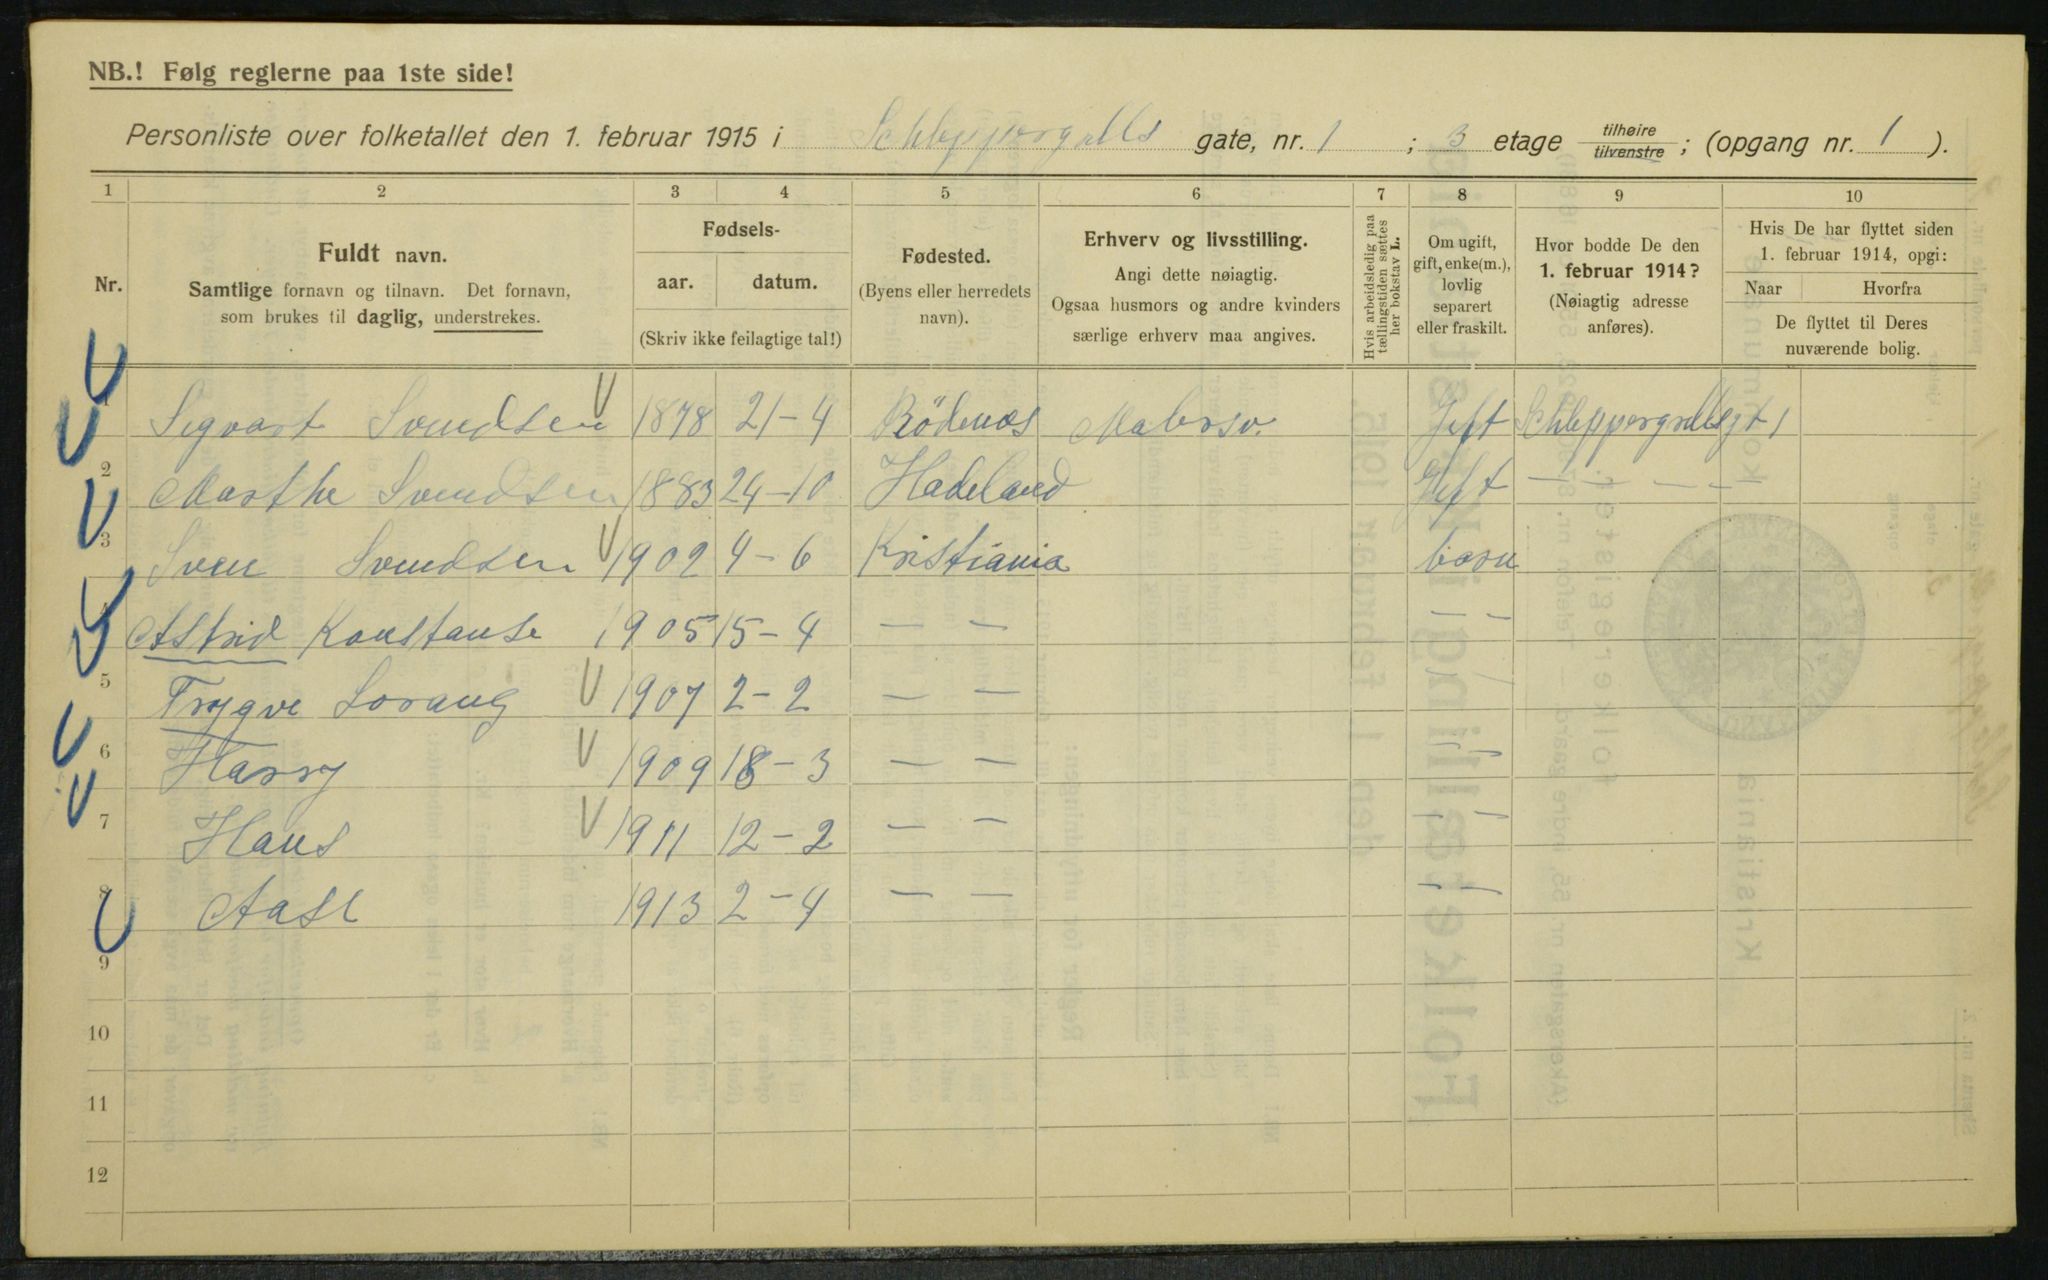 NB.! Følg reglerne paa 1ste side!
Personliste over folketallet den 1. februar 1915 i Schleppergrells gate, nr. 1 ; 3 etage tilhøire tilvenstre ; (opgang nr. 1 ).
1 2 3 4 5 6 7 8 9 10
Nr.
Fuldt navn.
Samtlige fornavn og tilnavn. Det fornavn,
som brukes til daglig, understrekes.
Fødsels-
aar. datum.
(Skriv ikke feilagtige tal!)
Fødested.
(Byens eller herredets
navn).
Erhverv og livsstilling.
Angi dette nøiagtig.
Ogsaa husmors og andre kvinders
særlige erhverv maa angives.
Hvis arbeidsledig paa
tællingstiden sættes
her bokstav L.
Om ugift,
gift, enke(m.),
lovlig
separert
eller fraskilt.
Hvor bodde De den
1. februar 1914?
(Nøiagtig adresse
anføres).
Hvis De har flyttet siden
1. februar 1914, opgi:
Naar Hvorfra
De flyttet til Deres
nuværende bolig.
1 Sigvart Svendsen 1878 21-4 Rödenæs Malersv. Gift Schleppergrellsgt 1
2 Marthe Svendsen 1883 24-10 Hadeland Gift — — — —
3 Sven Svendsen 1902 4-6 Kristiania barn
4 Astrid Konstanse 1905 15-4 — — — —
5 Trygve Lorang 1907 2-2 — — — —
6 Harry 1909 18-3 — — — —
7 Hans 1911 12-2 — — — —
8 Aase 1913 2-4 — — — —
9
10
11
12